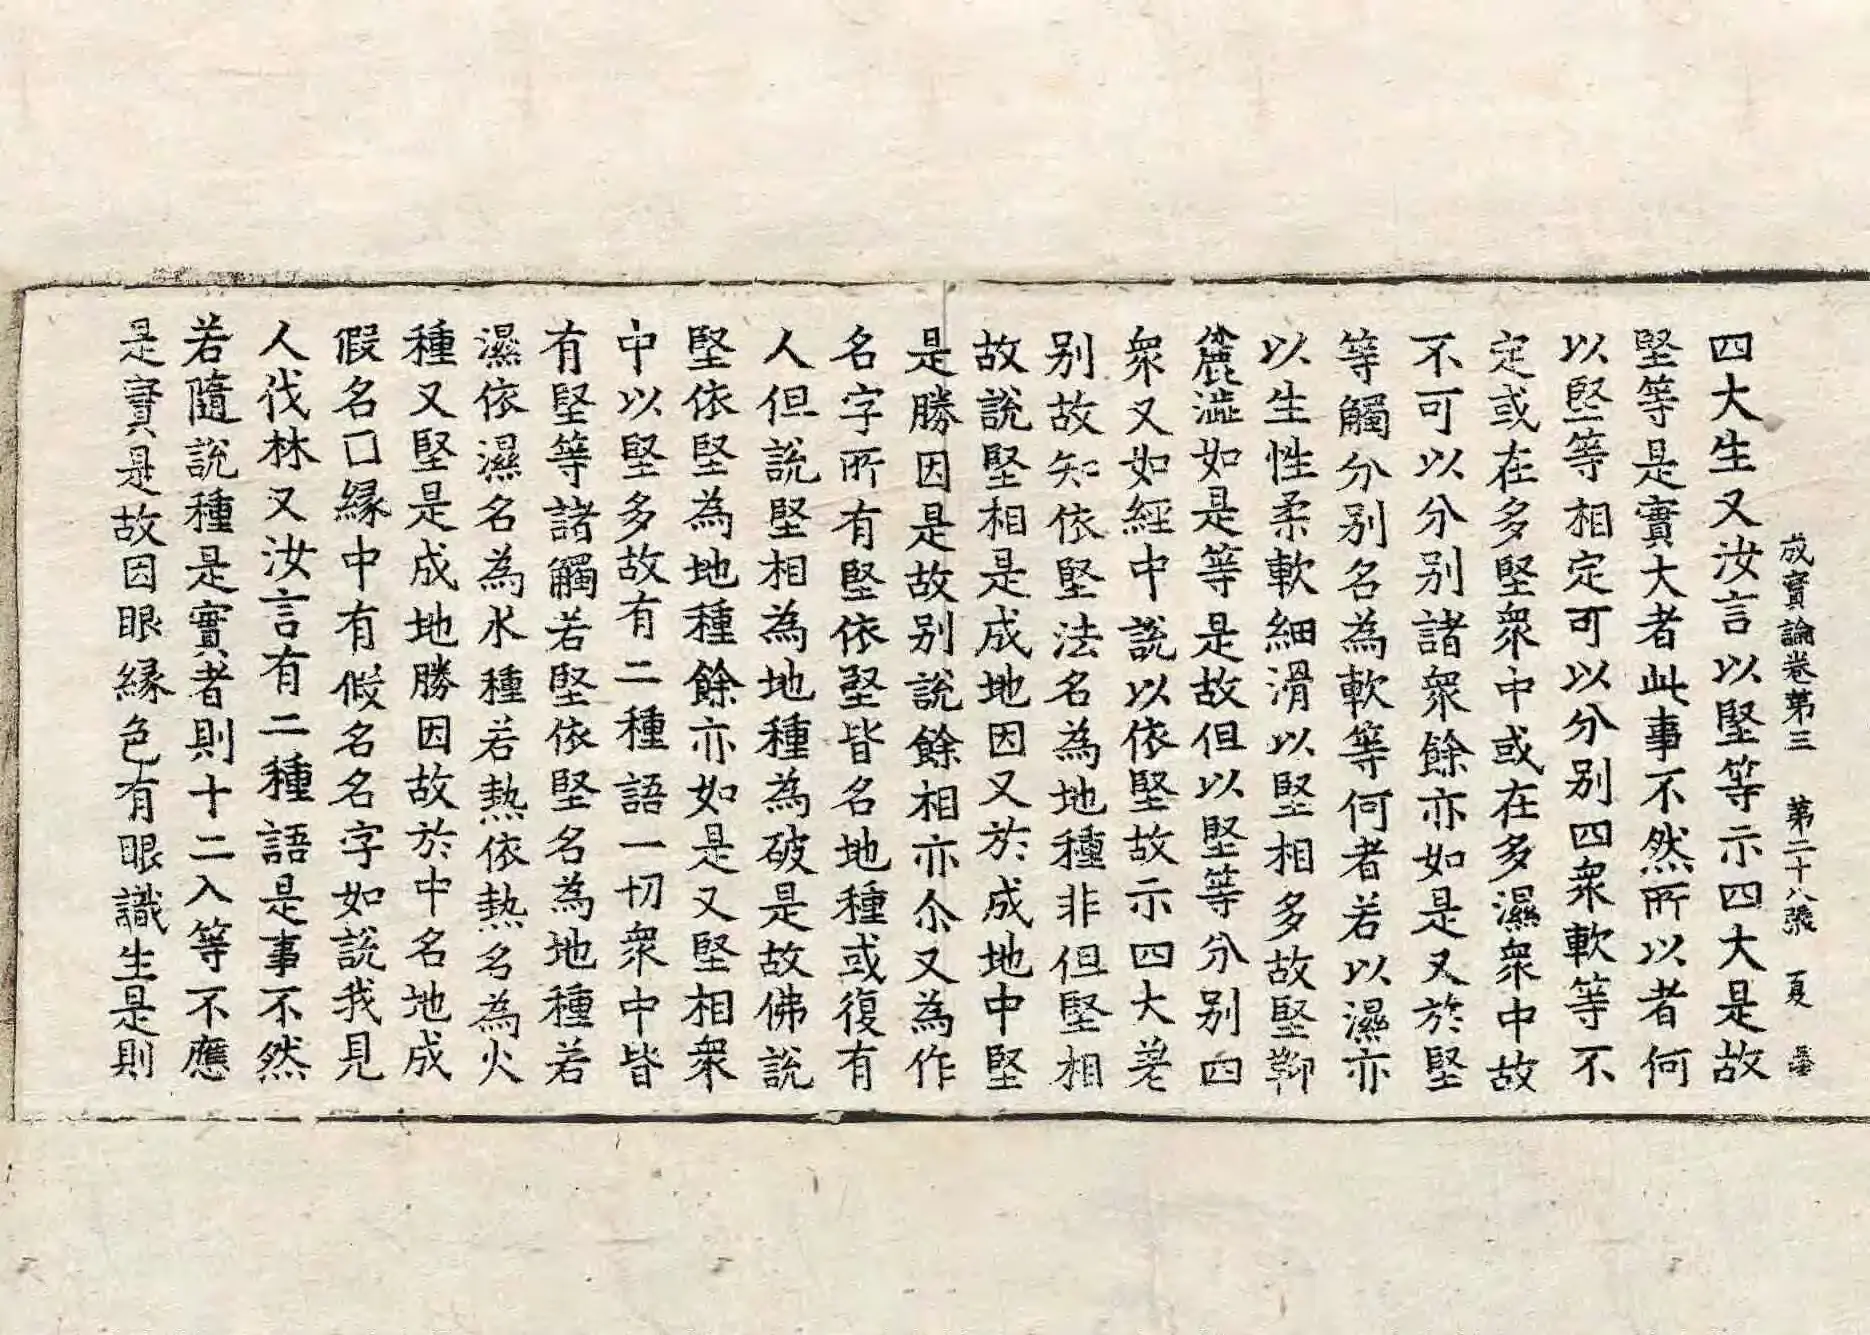 成實論卷第三 第二十八張 夏
四大生又汝言以堅等示四大是故
堅等是實大者此事不然所以者何
以堅等相定可以分別四衆軟等不
定或在多堅衆中或在多濕衆中故
不可以分別諸衆餘亦如是又於堅
等觸分別名為軟等何者若以濕亦
以生性柔軟細滑以堅相多故堅鞕
麁澁如是等是故但以堅等分別四
衆又如經中說以依堅故示四大差
別故知依堅法名為地種非但堅相
故說堅相是成地因又於成地中堅
是勝因是故別說餘相亦尒又為作
名字所有堅依堅皆名地種或復有
人但說堅相為地種為破是故佛說
堅依堅為地種餘亦如是又堅相衆
中以堅多故有二種語一切衆中皆
有堅等諸觸若堅依堅名為地種若
濕依濕名為水種若熱依熱名為火
種又堅是成地勝因故於中名地成
假名囙緣中有假名名字如說我見
人伐林又汝言有二種語是事不然
若隨說種是實者則十二入等不應
是實是故因眼緣色有眼識生是則